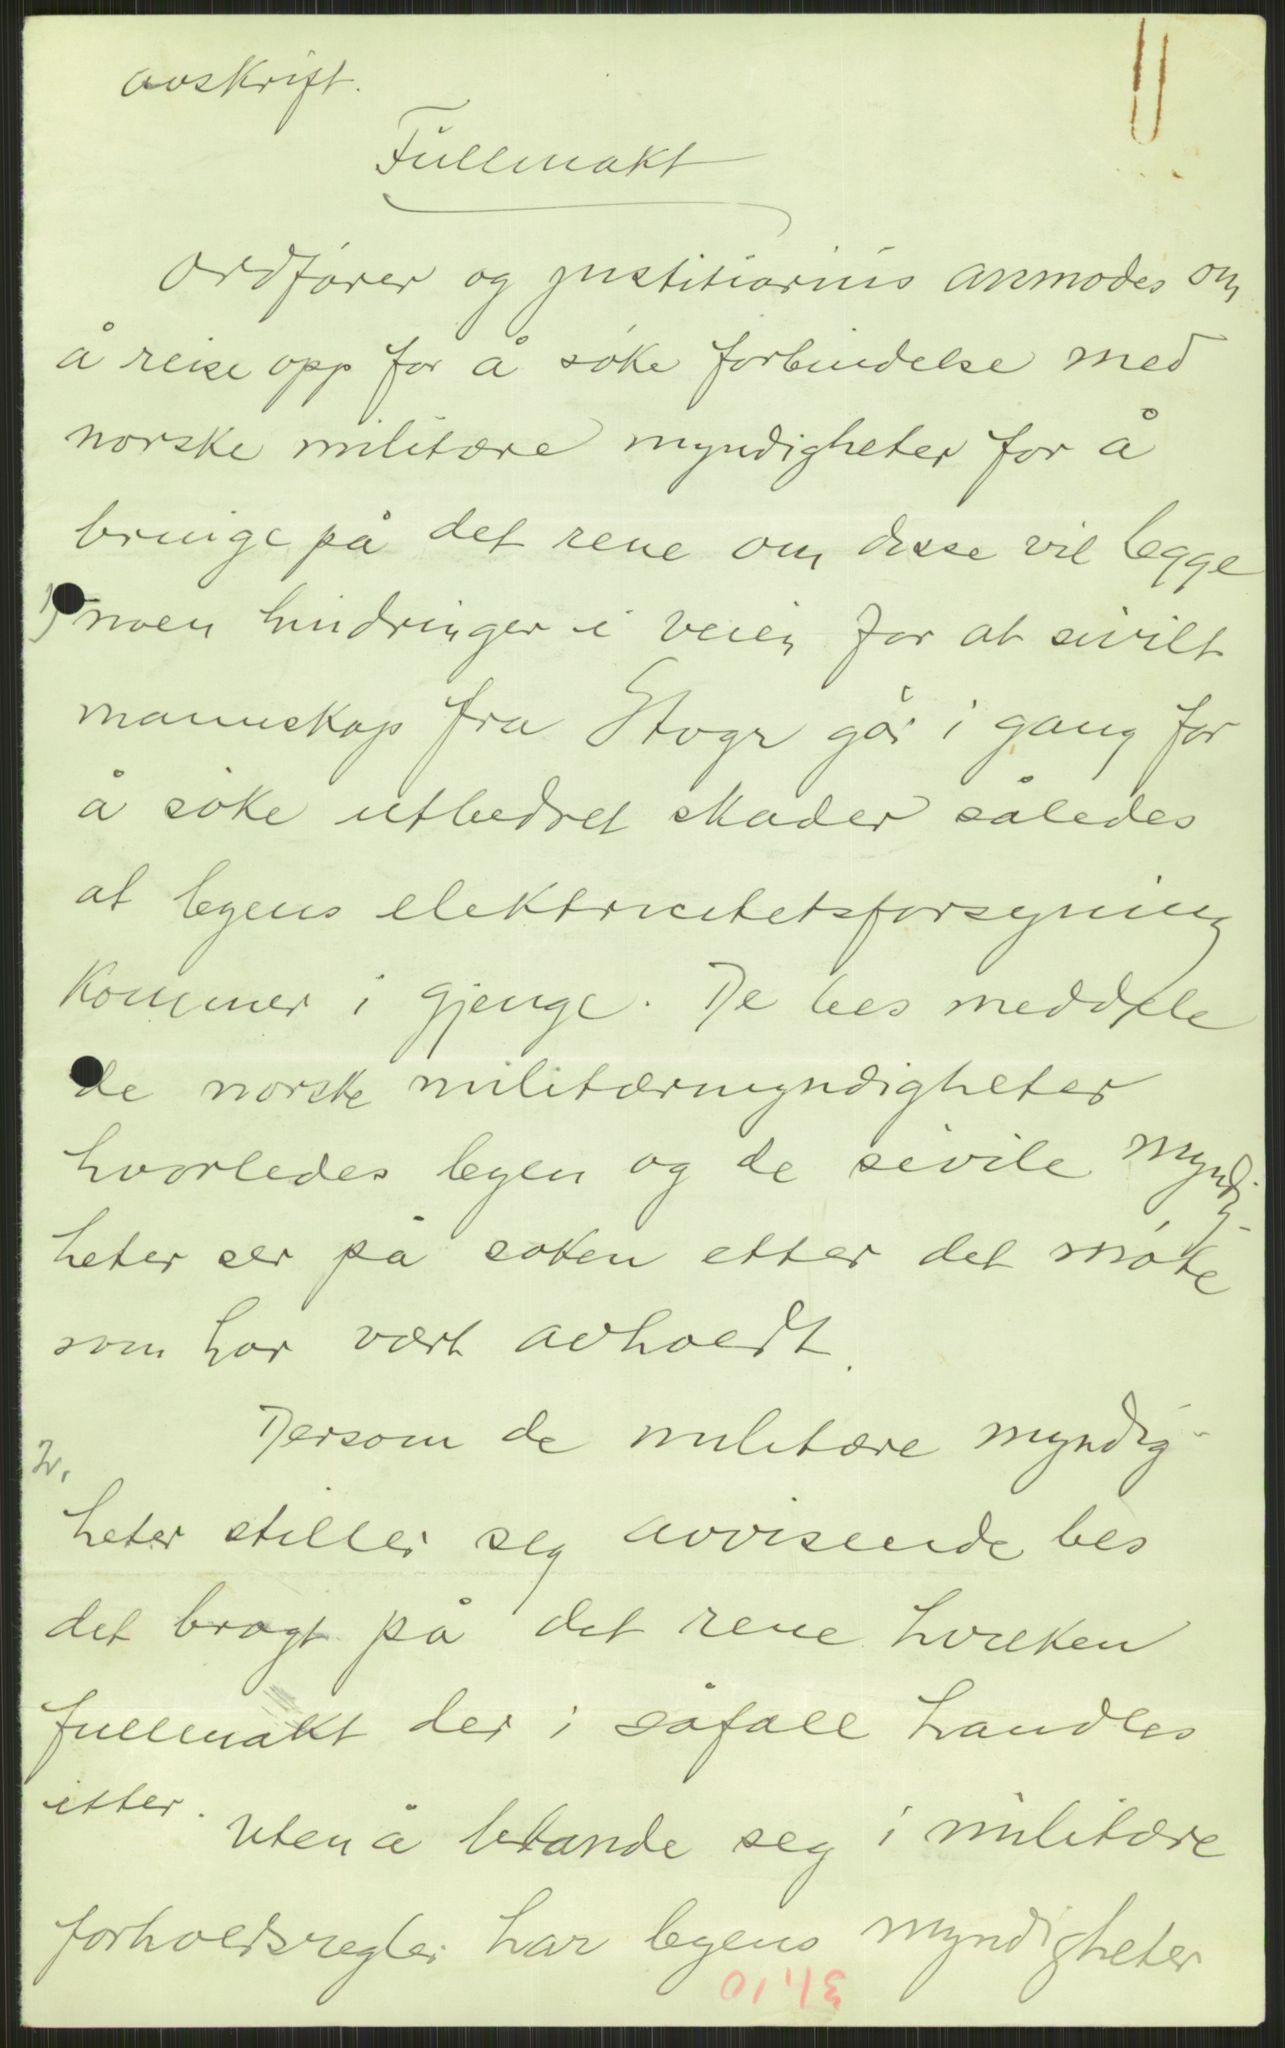 avskrift.
Fullmakt
Ordfører og justitiarius anmodes om
å reise opp for å søke forbindelse med
norske militære myndigheter for å
bringe på det rene om disse vil legge
1) noen hindringer i veien for at sivilt
mannskap fra går i gang for
å søke utbedret skader således
at byens elektricitetsforsyning
kommer i gjenge. De bes meddele
de norske militærmyndigheter
hvorledes byen og de sivile myndig-
heter ser på saken etter det møte
som har vært avholdt.
2. Dersom de militære myndig-
heter stiller seg avvisende bes
det bragt på det rene hvilken
fullmakt der i såfall handles
etter. Uten å blande seg i militære
forholdsregler har byens myndigheter